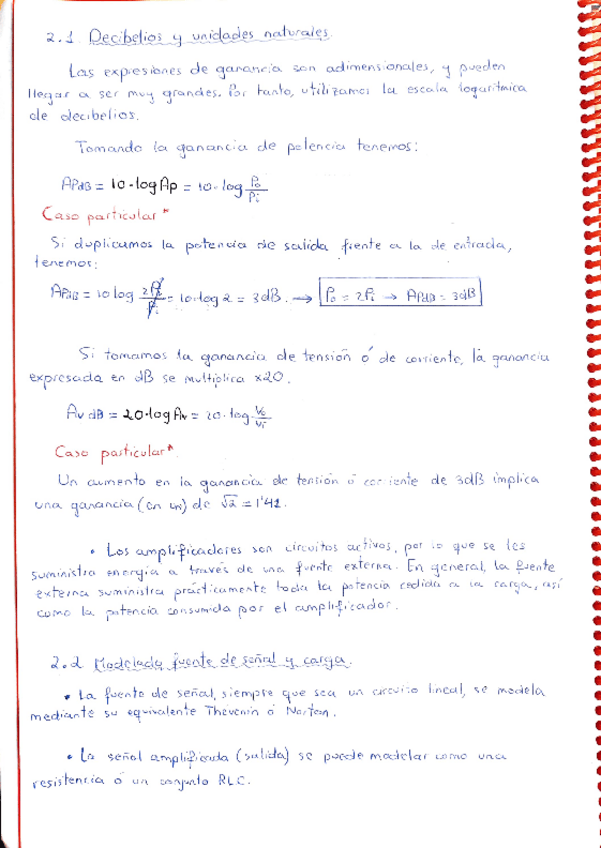 2.1 Decibelios y unidades naturales.
Las expresiones de ganancia son adimensionales, y pueden
llegar a ser muy grandes. Por tanto, utilizamos la escala logarítmica
de decibelios.
Tomando la ganancia de potencia tenemos:
APdB = 10·log Ap = 10·log Po/Pi
Caso particular*
Si duplicamos la potencia de salida frente a la de entrada,
tenemos:
APdB = 10 log 2Pi/Pi = 10·log 2 = 3dB. → Po = 2Pi → APdB = 3dB
Si tomamos la ganancia de tensión ó de corriente, la ganancia
expresada en dB se multiplica x20.
Av dB = 20·log Av = 20·log Vo/Vi
Caso particular*
Un aumento en la ganancia de tensión ó corriente de 3dB implica
una ganancia (en un) de √2 = 1'41.
• Los amplificadores son circuitos activos, por lo que se les
suministra energía a través de una fuente externa. En general, la fuente
externa suministra prácticamente toda la potencia cedida a la carga, así
como la potencia consumida por el amplificador.
2.2 Modelado fuente de señal y carga.
• La fuente de señal, siempre que sea un circuito lineal, se modela
mediante su equivalente Thevenin ó Norton.
• La señal amplificada (salida) se puede modelar como una
resistencia ó un conjunto RLC.